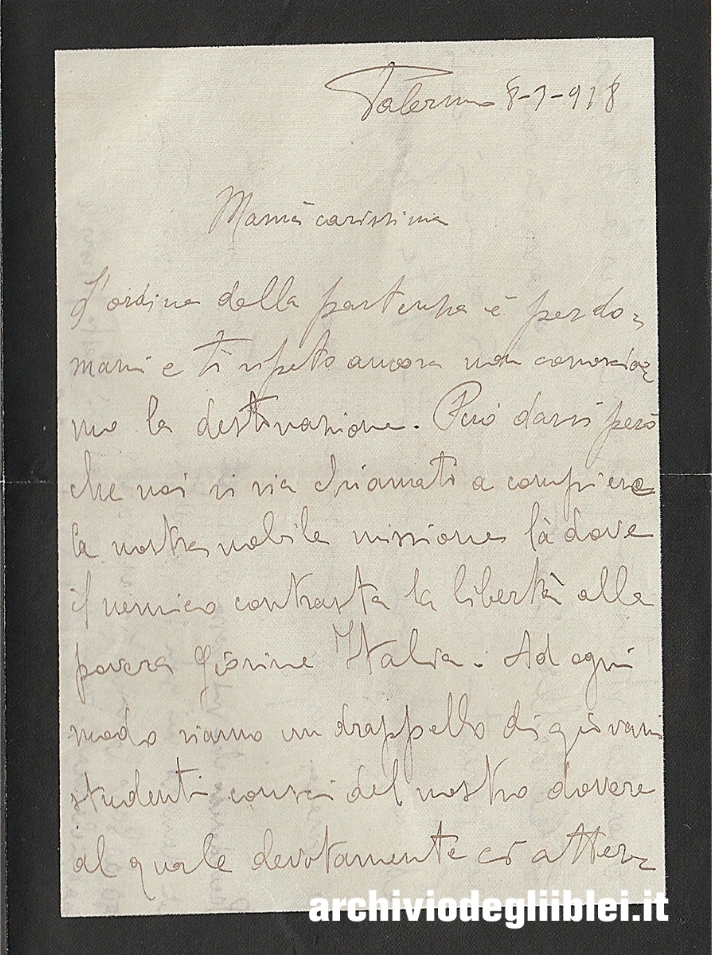 Palermo 8-7-918
Mamà carissima
L'ordine della partenza è per do=
mani e ti ripeto ancora non conoscia=
mo la destinazione. Può darsi però
che noi si sia chiamati a compiere
la nostra nobile missione là dove
il nemico contrasta la libertà alla
povera giovine Italia. Ad ogni
modo siamo un drappello di giovani
studenti consci del nostro dovere
al quale devotamente ci atter=
archiviodegliiblei.it